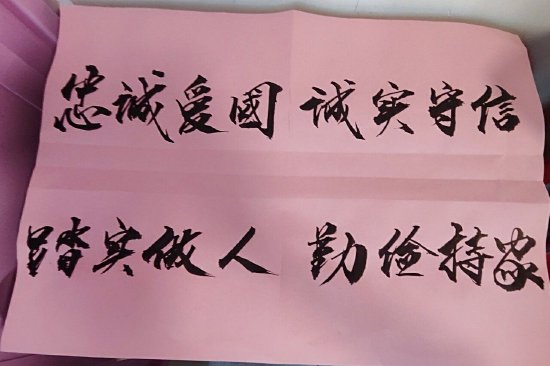 忠诚爱國 诚实守信
踏实做人 勤俭持家